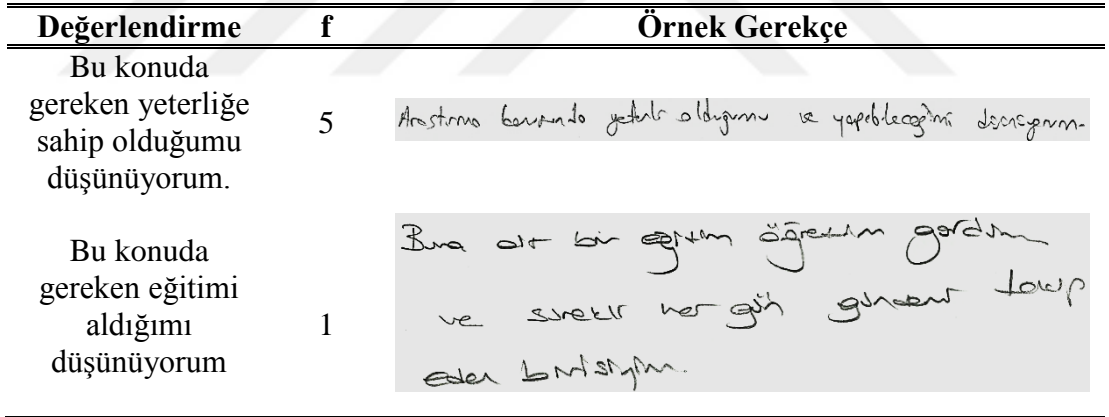 Değerlendirme f Örnek Gerekçe
Bu konuda
gereken yeterliğe
sahip olduğumu
düşünüyorum.
5
Araştırma konusunda yeterli olduğumu ve yapabileceğimi düşünüyorum.
Bu konuda
gereken eğitimi
aldığımı
düşünüyorum
1
Buna ait bir eğitim öğretim gördüm
ve sürekli her gün gündemi takip
eden birisiyim.